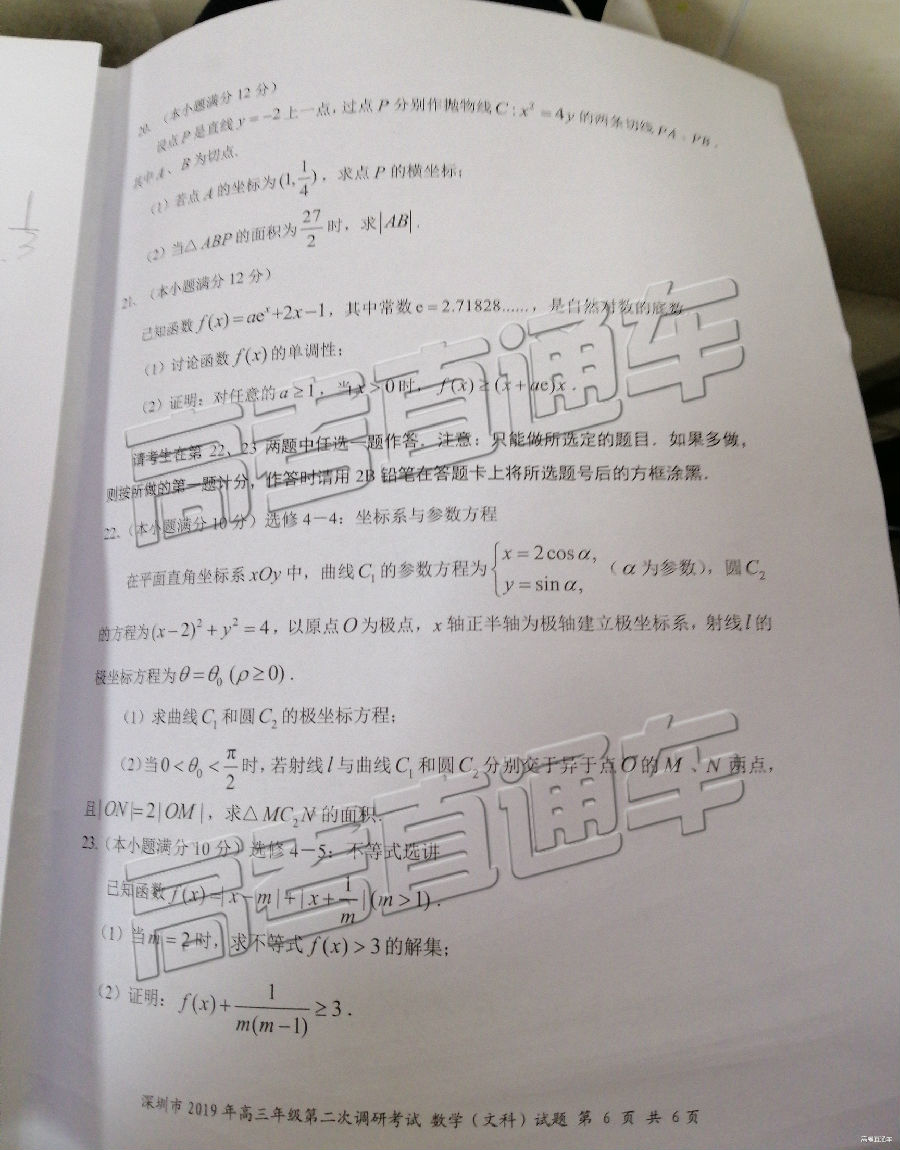 20. （本小题满分 12 分）
设点 P 是直线 y = −2 上一点，过点 P 分别作抛物线 C : x² = 4y 的两条切线 PA、PB，
其中 A、B 为切点.
（1）若点 A 的坐标为 (1, 1/4)，求点 P 的横坐标；
（2）当△ ABP 的面积为 27/2 时，求 |AB| .
21. （本小题满分 12 分）
已知函数 f(x) = aeˣ+2x−1，其中常数 e = 2.71828……，是自然对数的底数
（1）讨论函数 f(x) 的单调性；
（2）证明：对任意的 a ≥ 1，当 x > 0 时，f(x) ≥ (x + ae)x .
请考生在第 22、23 两题中任选一题作答．注意：只能做所选定的题目．如果多做，
则按所做的第一题计分，作答时请用 2B 铅笔在答题卡上将所选题号后的方框涂黑．
22.（本小题满分 10 分）选修 4－4：坐标系与参数方程
在平面直角坐标系 xOy 中，曲线 C₁ 的参数方程为 { x = 2cos α, y = sin α, （α 为参数），圆 C₂
的方程为 (x−2)² + y² = 4，以原点 O 为极点，x 轴正半轴为极轴建立极坐标系，射线 l 的
极坐标方程为 θ = θ₀ (ρ ≥ 0) .
（1）求曲线 C₁ 和圆 C₂ 的极坐标方程；
（2）当 0 < θ₀ < π/2 时，若射线 l 与曲线 C₁ 和圆 C₂ 分别交于异于点 O 的 M 、N 两点，
且 |ON|=2|OM|，求△ MC₂N 的面积.
23.（本小题满分 10 分）选修 4－5：不等式选讲
已知函数 f(x) =| x − m | + | x + 1/m | (m > 1) .
（1）当 m = 2 时，求不等式 f(x) > 3 的解集；
（2）证明：f(x) + 1/(m(m −1)) ≥ 3 .
深圳市 2019 年高三年级第二次调研考试 数学（文科）试题 第 6 页 共 6 页
高考直通车
高考直通车
高考直通车
1/3